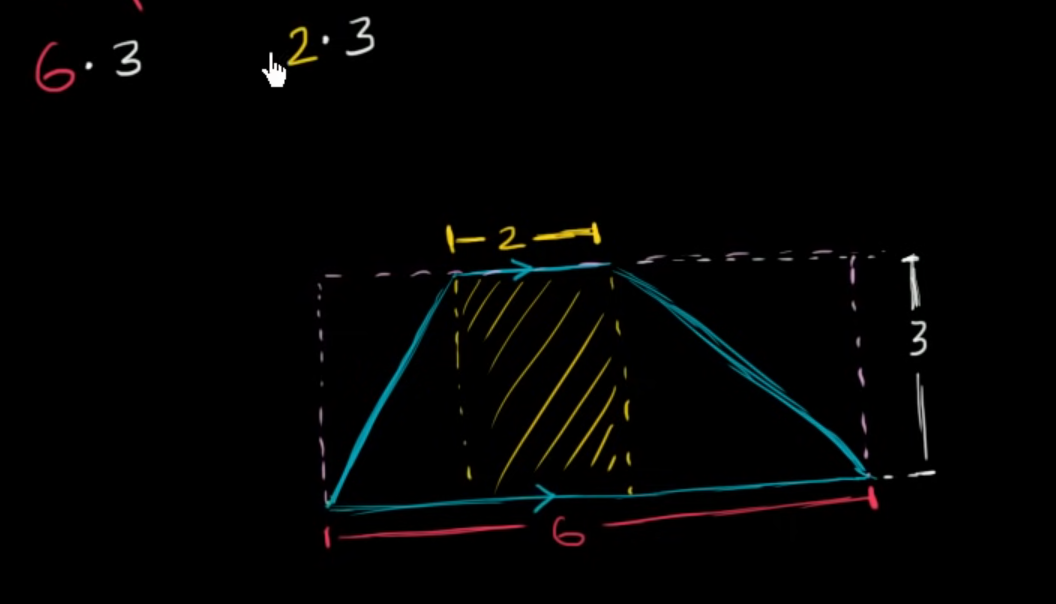 6·3 2·3
2
3
6